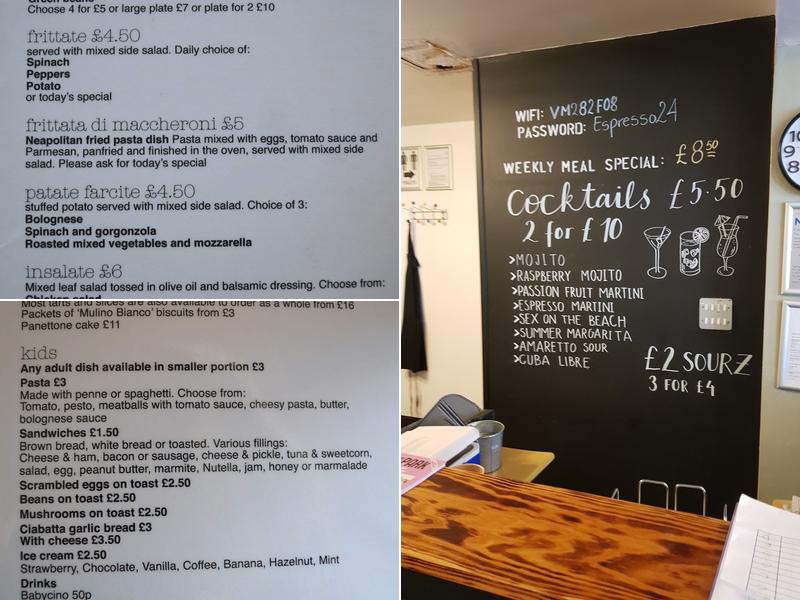 Green beans
Choose 4 for £5 or large plate £7 or plate for 2 £10
frittate £4.50
served with mixed side salad. Daily choice of:
Spinach
Peppers
Potato
or today's special
frittata di maccheroni £5
Neapolitan fried pasta dish Pasta mixed with eggs, tomato sauce and
Parmesan, panfried and finished in the oven, served with mixed side
salad. Please ask for today's special
patate farcite £4.50
stuffed potato served with mixed side salad. Choice of 3:
Bolognese
Spinach and gorgonzola
Roasted mixed vegetables and mozzarella
insalate £6
Mixed leaf salad tossed in olive oil and balsamic dressing. Choose from:
Chicken salad
Most tarts and slices are also available to order as a whole from £16
Packets of 'Mulino Bianco' biscuits from £3
Panettone cake £11
kids
Any adult dish available in smaller portion £3
Pasta £3
Made with penne or spaghetti. Choose from:
Tomato, pesto, meatballs with tomato sauce, cheesy pasta, butter,
bolognese sauce
Sandwiches £1.50
Brown bread, white bread or toasted. Various fillings:
Cheese & ham, bacon or sausage, cheese & pickle, tuna & sweetcorn,
salad, egg, peanut butter, marmite, Nutella, jam, honey or marmalade
Scrambled eggs on toast £2.50
Beans on toast £2.50
Mushrooms on toast £2.50
Ciabatta garlic bread £3
With cheese £3.50
Ice cream £2.50
Strawberry, Chocolate, Vanilla, Coffee, Banana, Hazelnut, Mint
Drinks
Babycino 50p
WIFI: VM282F08
PASSWORD: Espresso24
WEEKLY MEAL SPECIAL: £8.50
Cocktails £5.50
2 for £10
>MOJITO
>RASPBERRY MOJITO
>PASSION FRUIT MARTINI
>ESPRESSO MARTINI
>SEX ON THE BEACH
>SUMMER MARGARITA
>AMARETTO SOUR
>CUBA LIBRE
£2 SOURZ
3 FOR £4
10
9
8